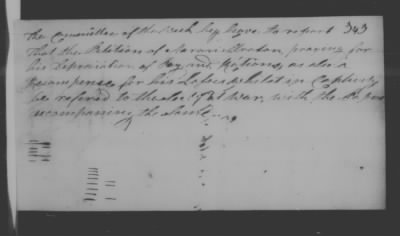 The Committee of the Week beg leave to report 343
That the Petition of praying for
his Depreciation of Pay and Rations, as also a
Recompence for his whilst in Captivity
be referred to the Sec'y at War, with the Papers
accompanying the same